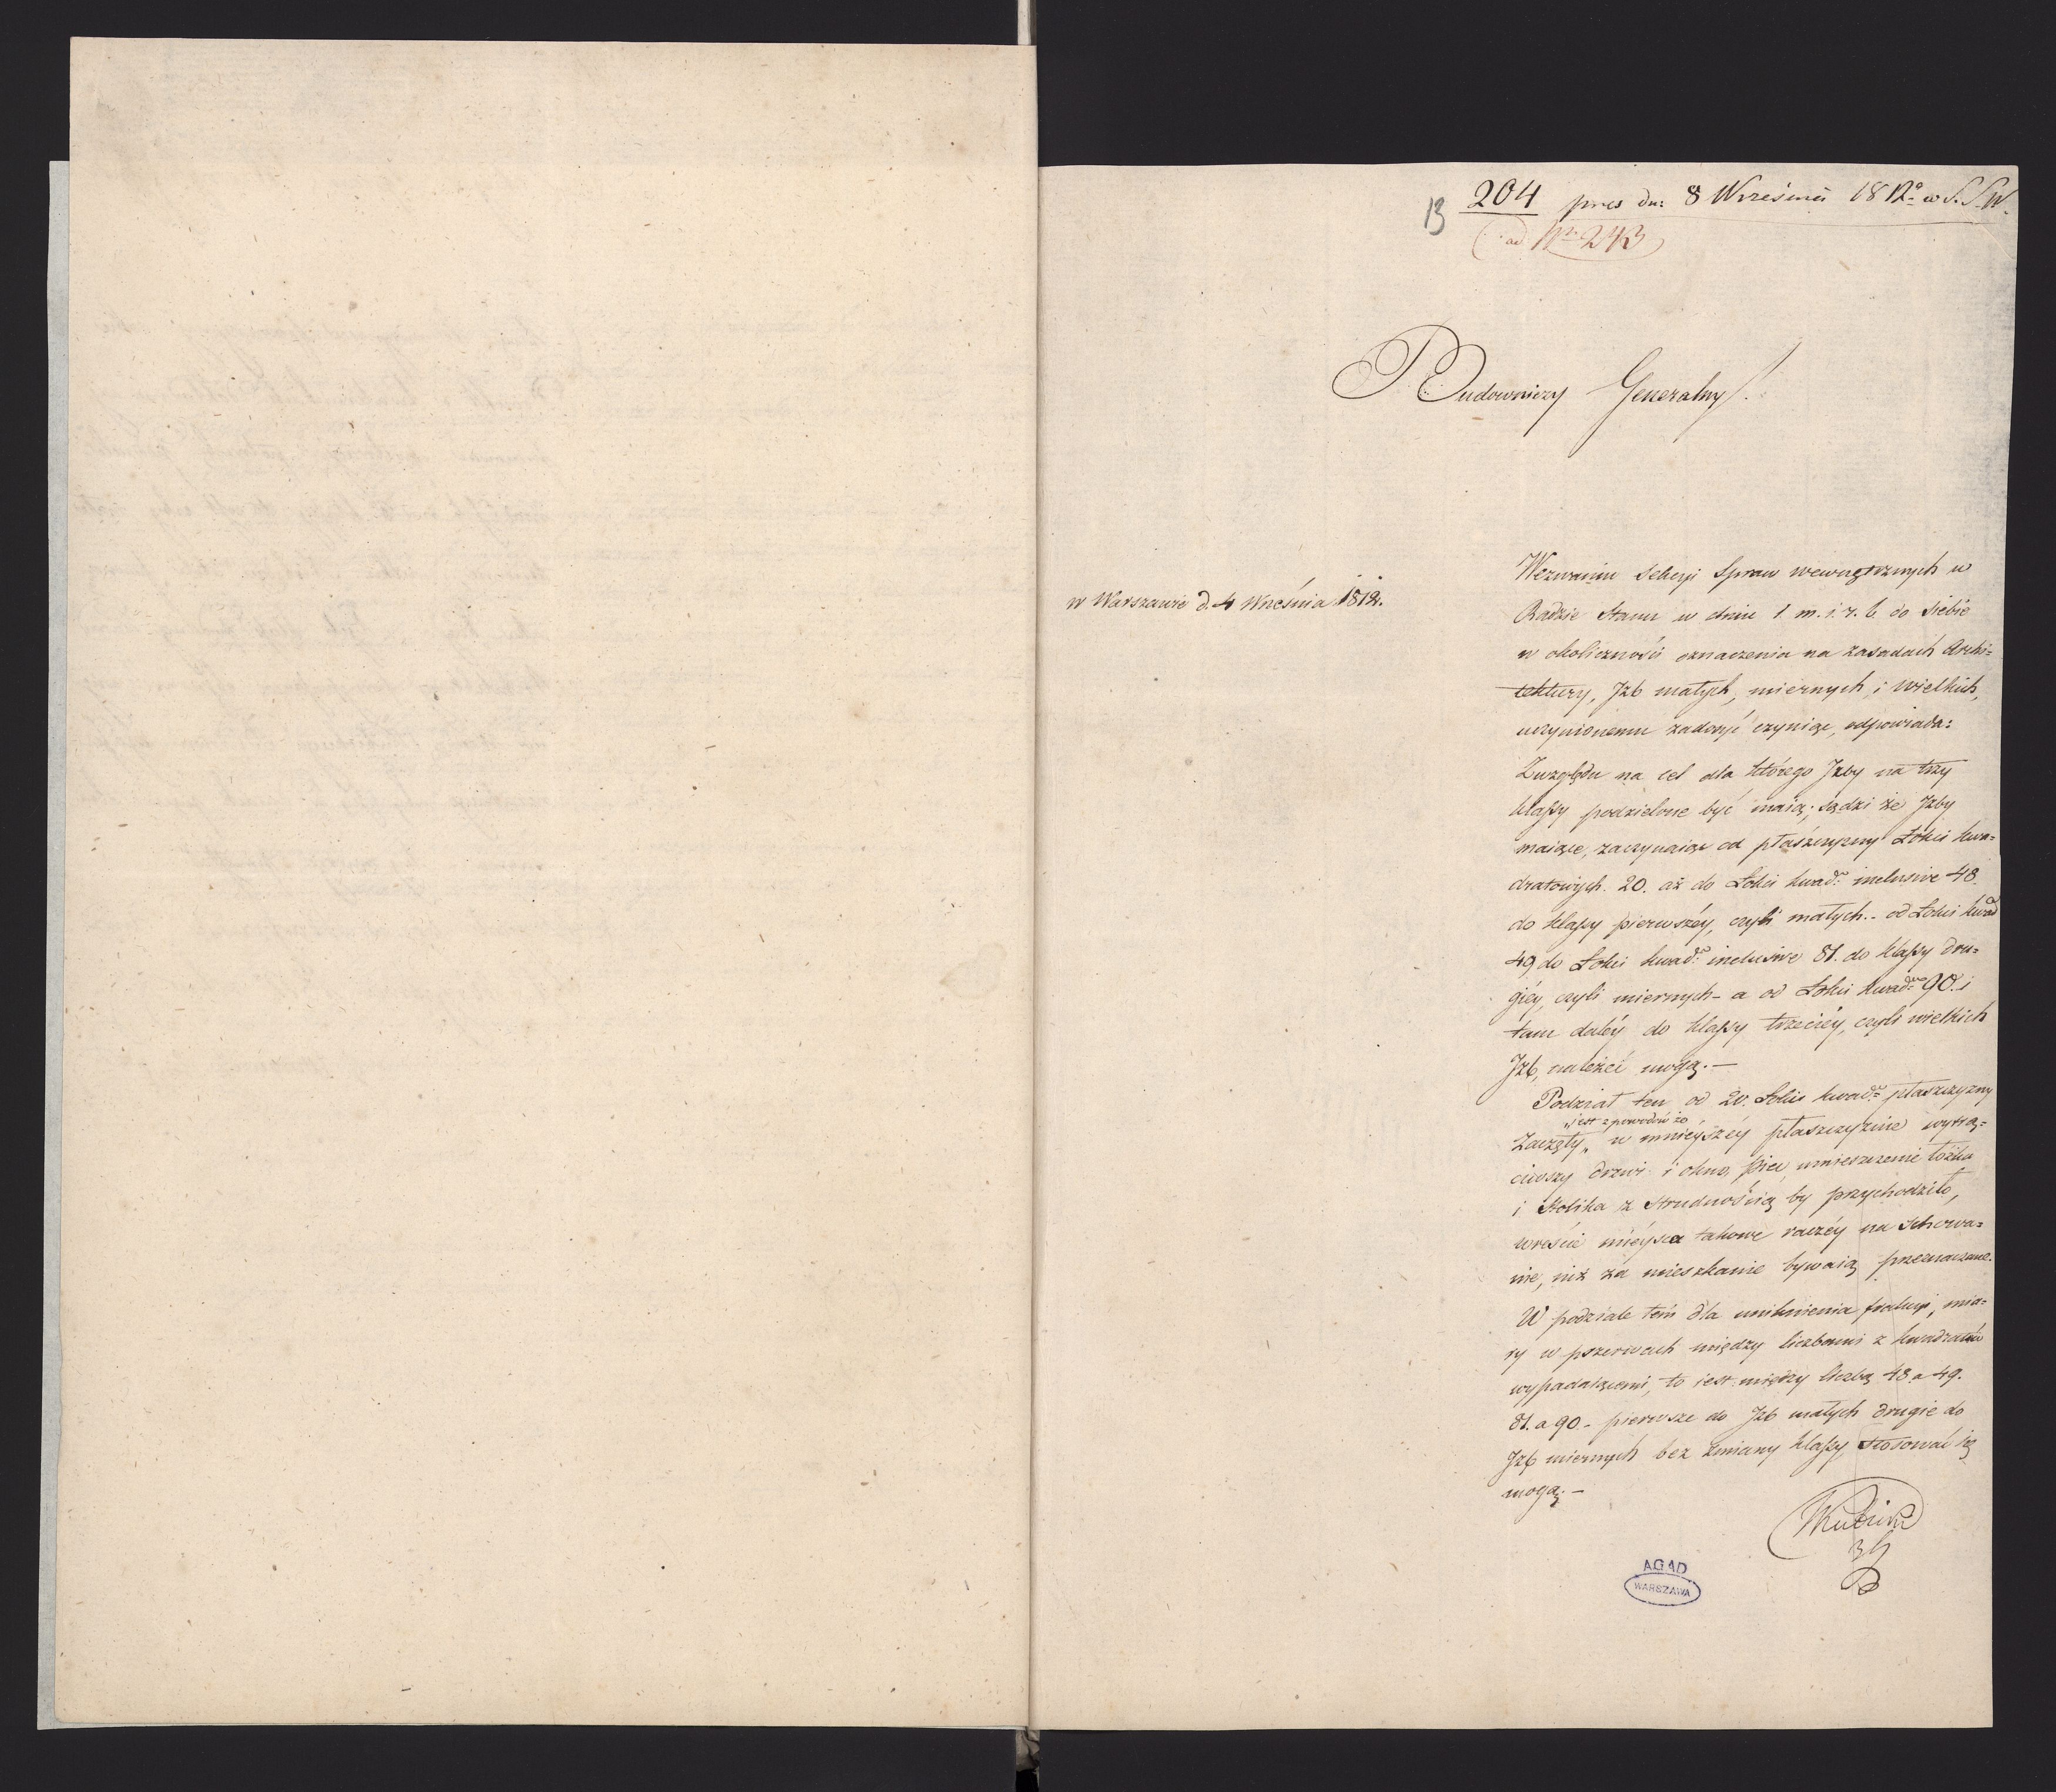 13
204 pres dn: 8 Wrześnei 1812º w S. S. W.
(: ad Nr 243)
P. Budowniczy Generalny/.
w Warszawie d. 4 Wrzesnia 1812.
Wezwaniu Sekcyi Spraw wewnętrznych w
Radzie Stanu w dniu 1. m. i. r. b. do siebie
w okoliczności oznaczenia na zasadach Archi=
tektury, Jzb małych, miernych, i wielkich,
uczynionemu zadosyć czyniąc, odpowiada:
Zwzględu na cel dla którego Jzby na trzy
klassy podzielone być maią; sądzi że Jzby
maiące, zaczynaiąc od płaszczyzny Łokci kwa=
dratowych. 20. aż do Łokci kwad: inclusive 48.
do klassy pierwszéy, czyli małych.- od Łokci kwad
49 do Łokci kwad: inclusive 81. do klassy dru=
giéy, czyli miernych- a od Łokci kwad: 90. i
tam daléy do klassy trzeciéy, czyli wielkich
Jzb, należeć mogą.-
Podział ten od 20. Łokci kwad: płaszczyzny
„iest z powodów że
Zaczęty„ w mnieyszey płaszczyznie wytrą=
ciwszy drzwi i okno, piec, umieszczenie łóżka
i Stolika z trudnością by przychodziło,
wreście mieysca takowe raczéy na Schowa=
nie, niż za mieszkanie bywaią przeznaczone.
W podziale tem dla uniknienia frakcyi, mia=
ry w przerwach między liczbami z kwadratów
wypadaiącemi, to iest między liczbą 48. a 49.
81. a 90- pierwsze do Jzb małych drugie do
Jzb miernych bez zmiany klassy stosować się
mogą.-
AGAD
WARSZAWA